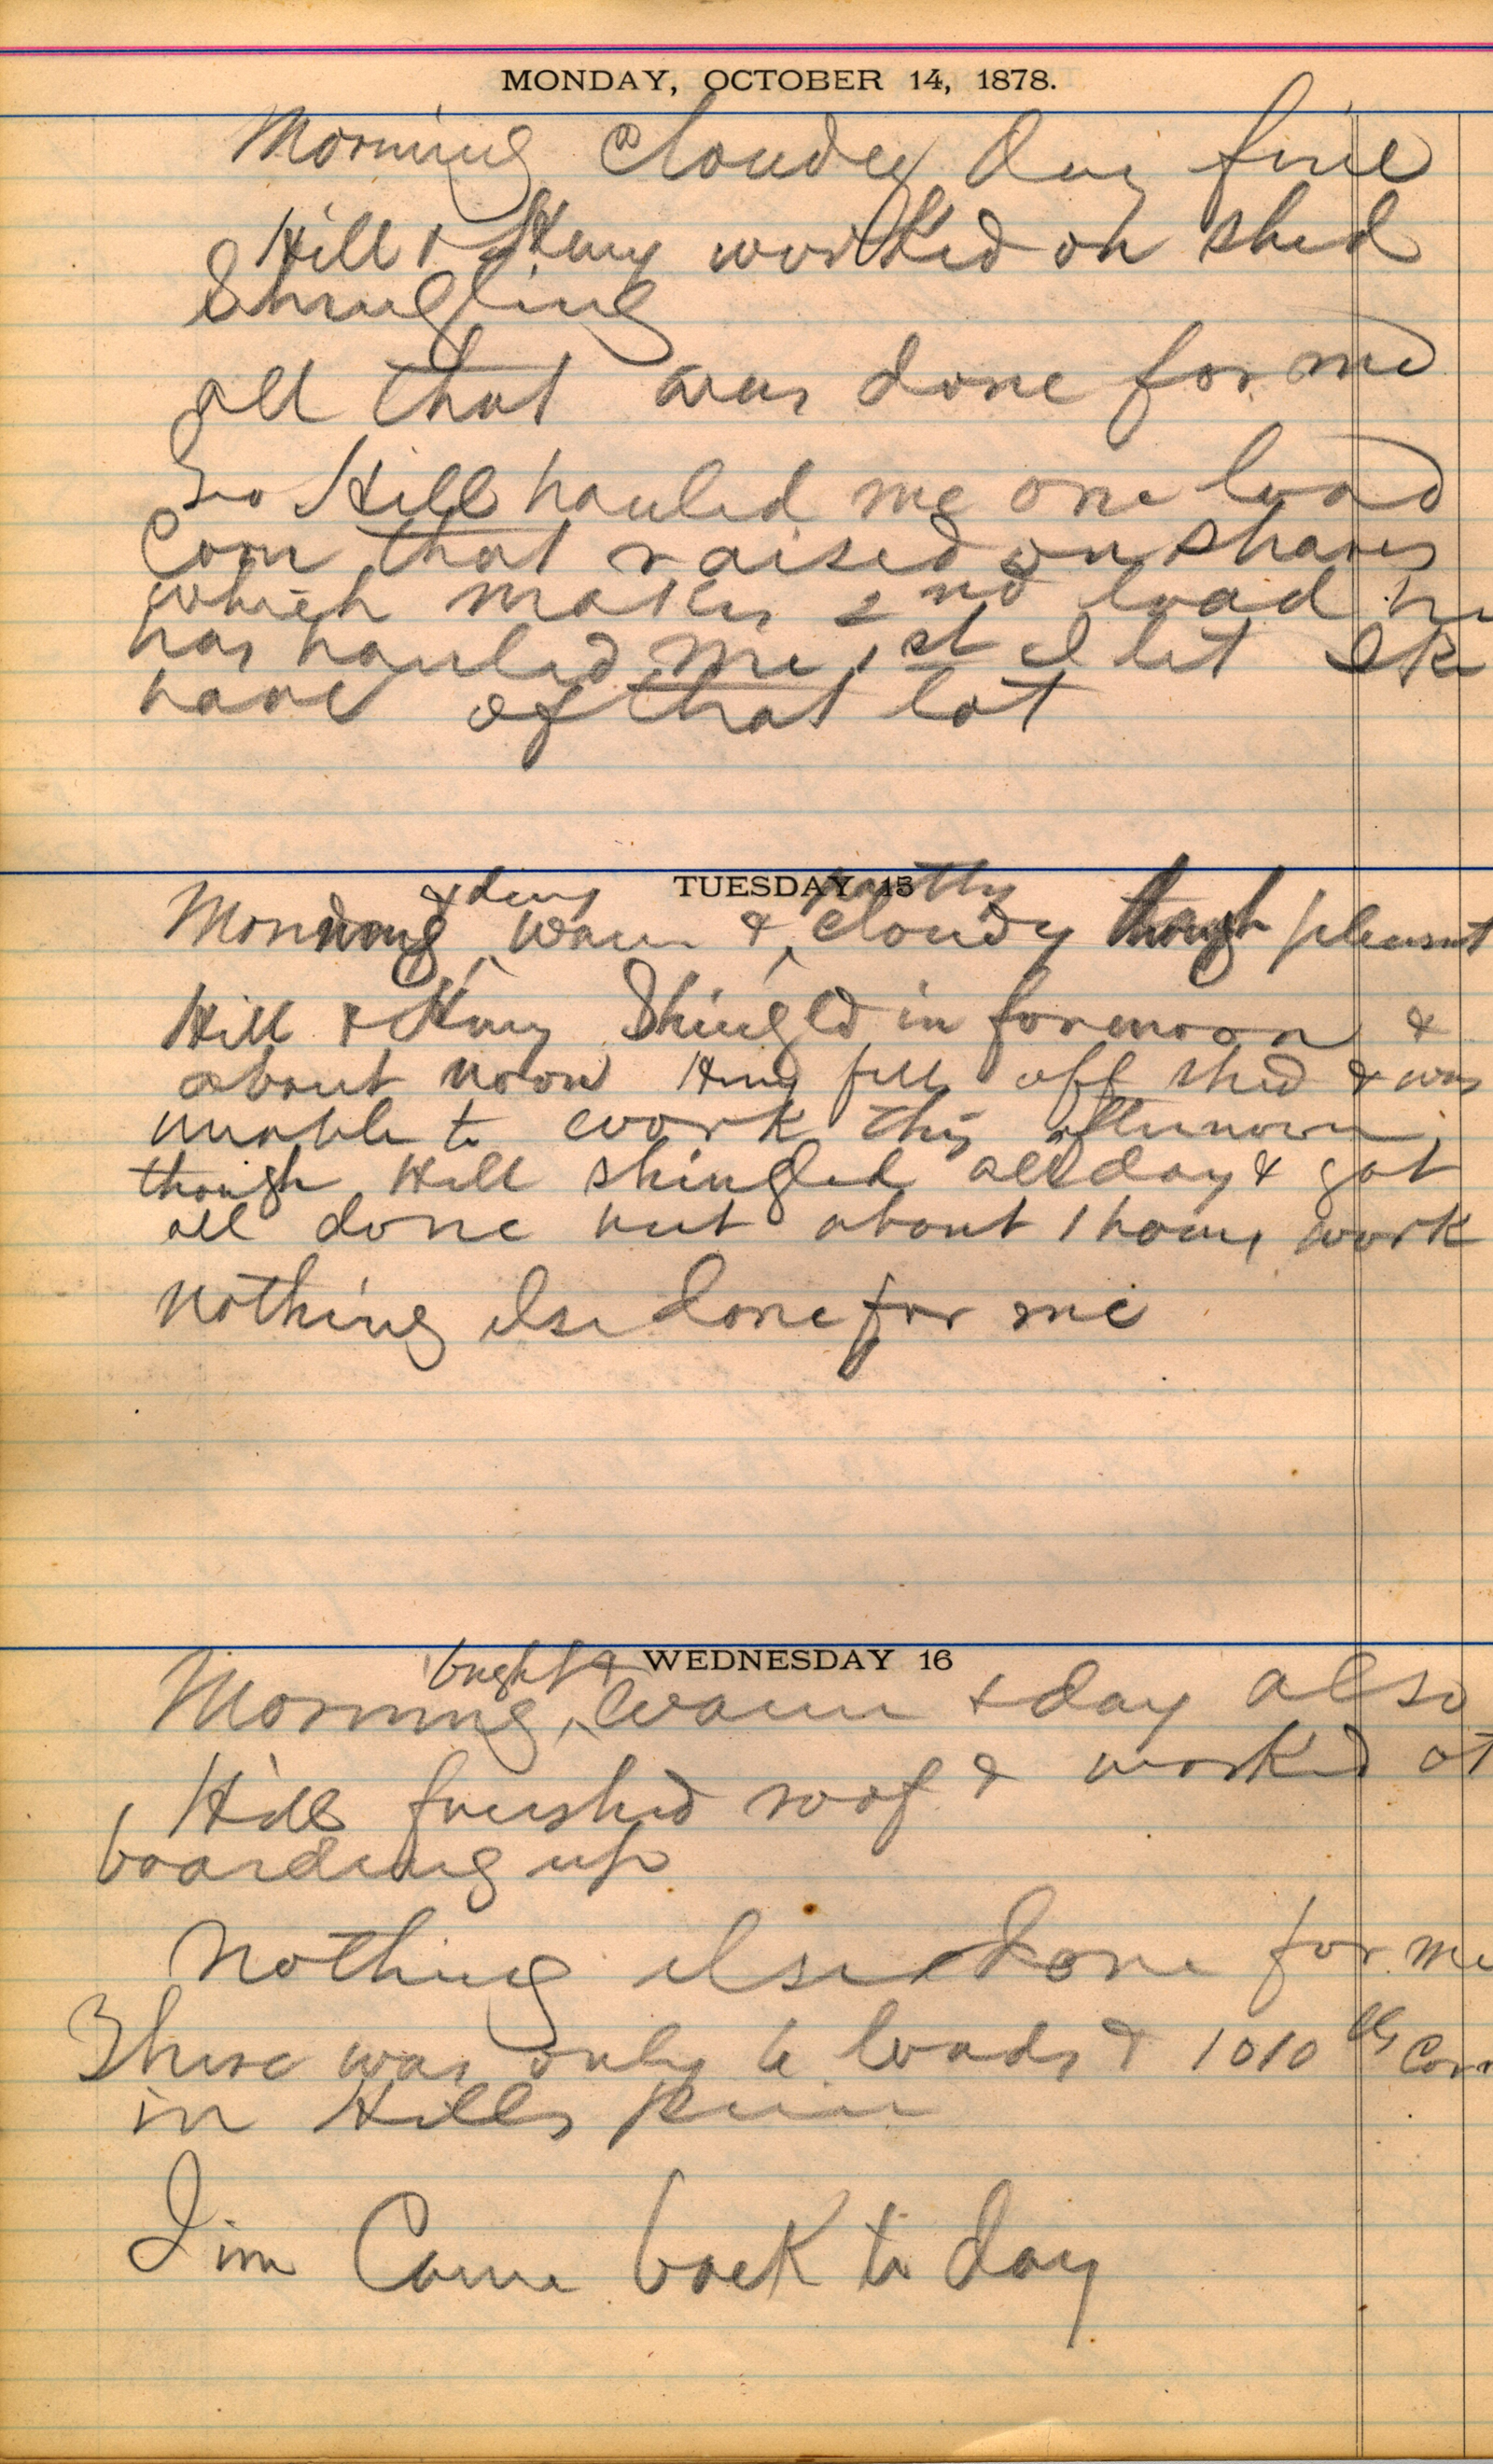 MONDAY, OCTOBER 14, 1878.
Morning Cloudy Day fine
Hill & Henry worked on shed
Shingling
all that was done for me
Geo Hill hauled me one load
Corn that raised on shares
which makes 2nd load he
has hauled me 1st I let Ike
have of that lot
TUESDAY 15
& day partly
Morning Warm & cloudy though pleasant
Hill & Henry Shingled in forenoon &
about noon Henry fell off shed & was
unable to work this afternoon
though Hill shingled all day & got
all done but about 1 hours work
Nothing else done for me
WEDNESDAY 16
bright &
Morning Warm & day also
Hill finished roof & worked at
boarding up
Nothing else done for me
There was only 6 loads & 1010 lbs Corn
in Hills
Jim Came back to day